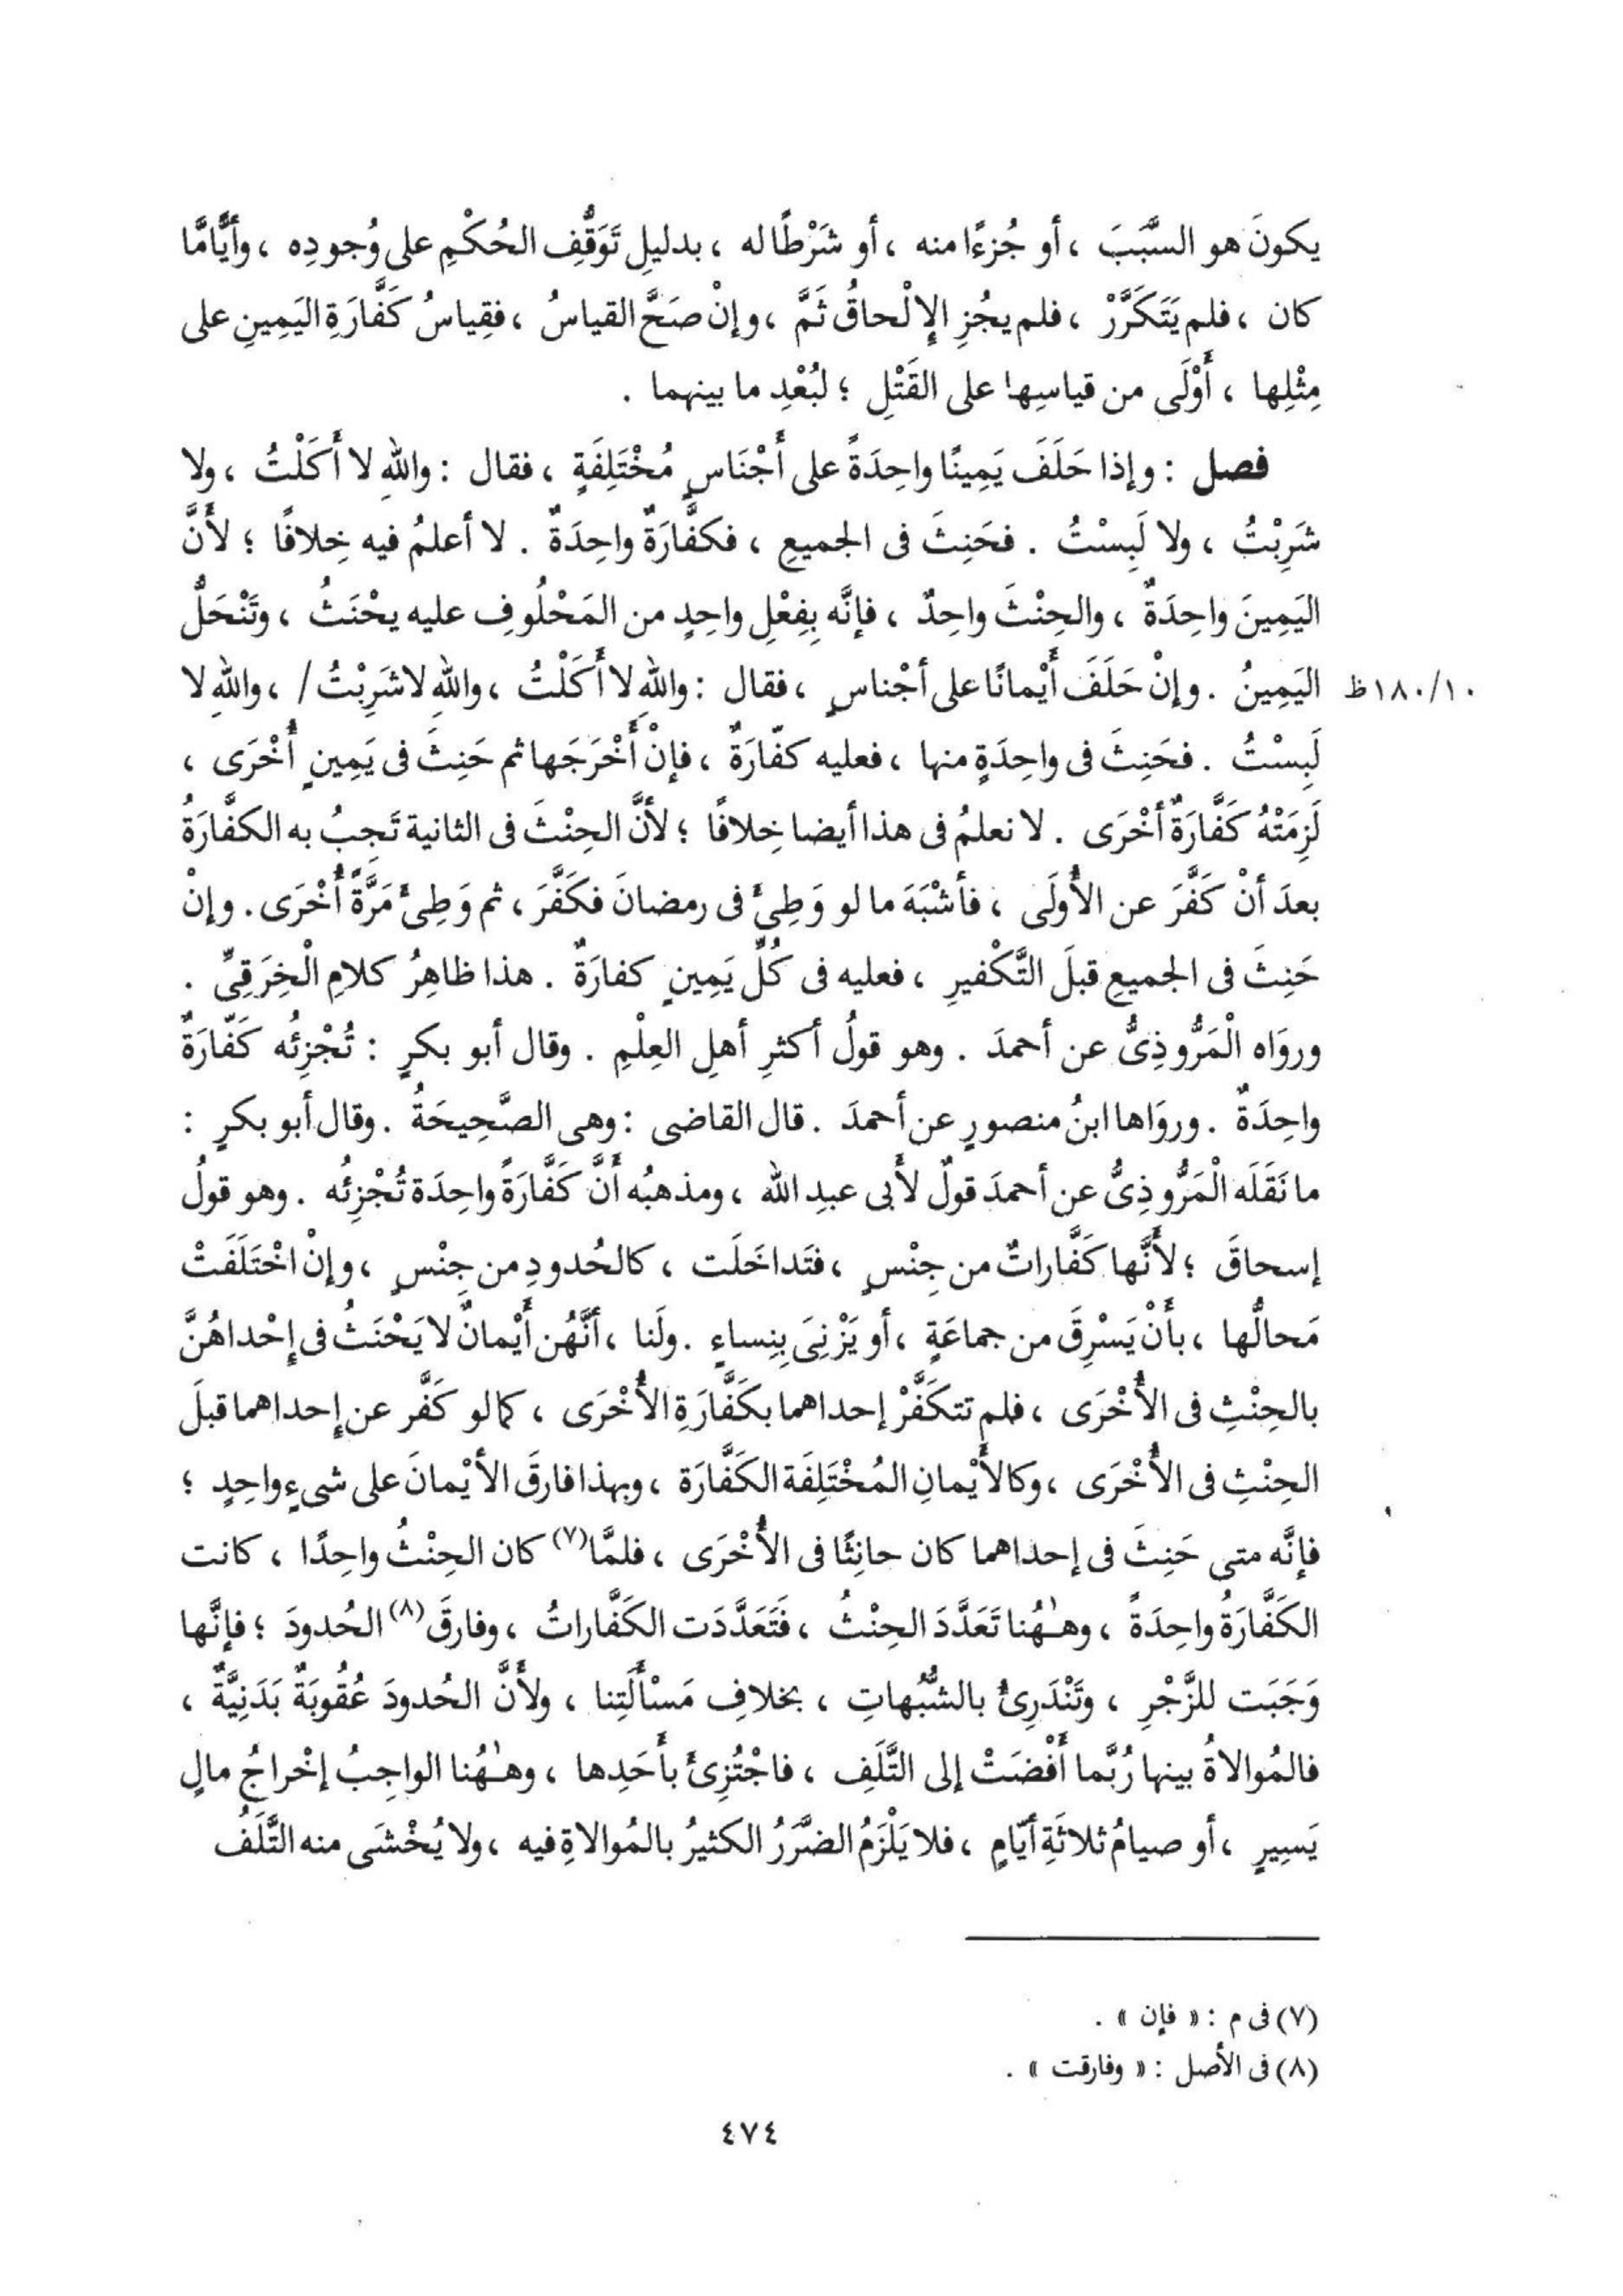 يكونَ هو السَّبَبَ ، أو جُزءًا منه ، أو شَرْطًا له ، بدليلِ تَوَقُّفِ الحُكْمِ على وُجودِه ، وأيًّامَّا
كان ، فلم يَتَكَرَّرْ ، فلم يجُزِ الإِلْحاقُ ثَمَّ ، وإنْ صَحَّ القياسُ ، فقِياسُ كَفَّارَةِ اليَمِينِ على
مِثْلِها ، أَوْلَى من قياسِها على القَتْلِ ؛ لبُعْدِ ما بينهما .
فصل : وإذا حَلَفَ يَمِينًا واحِدَةً على أَجْنَاسٍ مُخْتَلِفَةٍ ، فقال : واللهِ لا أَكَلْتُ ، ولا
شَرِبْتُ ، ولا لَبِسْتُ . فحَنِثَ فى الجميعِ ، فكفَّارَةٌ واحِدَةٌ . لا أعلمُ فيه خِلافًا ؛ لأَنَّ
اليَمِينَ واحِدَةٌ ، والحِنْثَ واحِدٌ ، فإنَّه بِفِعْلِ واحِدٍ من المَحْلُوفِ عليه يحْنَثُ ، وتَنْحَلُّ
اليَمِينُ . وإنْ حَلَفَ أَيْمانًا على أجْناسٍ ، فقال : واللهِ لا أَكَلْتُ ، واللهِ لا شَرِبْتُ / ، واللهِ لا ١٨٠/١٠ظ
لَبِسْتُ . فحَنِثَ فى واحِدَةٍ منها ، فعليه كفّارَةٌ ، فإنْ أَخْرَجَها ثم حَنِثَ فى يَمِينٍ أُخْرَى ،
لَزِمَتْهُ كَفَّارَةٌ أخْرَى . لا نعلمُ فى هذا أيضا خِلافًا ؛ لأَنَّ الحِنْثَ فى الثانية تَجِبُ به الكفَّارَةُ
بعدَ أنْ كَفَّرَ عن الأُولَى ، فأشْبَهَ ما لو وَطِئَ فى رمضانَ فكَفَّرَ ، ثم وَطِئَ مَرَّةً أُخْرَى . وإنْ
حَنِثَ فى الجميعِ قبلَ التَّكْفيرِ ، فعليه فى كُلِّ يَمِينٍ كفارَةٌ . هذا ظاهِرُ كلامِ الْخِرَقِىِّ .
وروَاه الْمَرُّوذِىُّ عن أحمدَ . وهو قولُ أكثرِ أهلِ العِلْمِ . وقال أبو بكرٍ : تُجْزِئُه كَفّارَةٌ
واحِدَةٌ . وروَاها ابنُ منصورٍ عن أحمدَ . قال القاضى : وهى الصَّحِيحَةُ . وقال أبو بكرٍ :
ما نَقَلَه الْمَرُّوذِىُّ عن أحمدَ قولٌ لأَبى عبدِ الله ، ومذهبُه أَنَّ كَفَّارَةً واحِدَة تُجْزِئُه . وهو قولُ
إسحاقَ ؛ لأَنَّها كَفَّاراتٌ من جِنْسٍ ، فتَداخَلَت ، كالحُدودِ من جِنْسٍ ، وإنْ اخْتَلَفَتْ
مَحالُّها ، بأنْ يَسْرِقَ من جماعَةٍ ، أو يَزْنِىَ بِنِساءٍ . ولَنا ، أنَّهُن أَيْمانٌ لا يَحْنَثُ فى إِحْداهُنَّ
بالحِنْثِ فى الأُخْرَى ، فلم تتكَفَّرْ إحداهما بكَفَّارَةِ الأُخْرَى ، كما لو كَفَّر عن إحداهما قبلَ
الحِنْثِ فى الأُخْرَى ، وكالأَيْمانِ المُخْتَلِفَة الكَفَّارَة ، وبهذا فارقَ الأيْمانَ على شىءٍ واحِدٍ ؛
فإنَّه متى حَنِثَ فى إحداهما كان حانِثًا فى الأُخْرَى ، فلمَّا(٧) كان الحِنْثُ واحِدًا ، كانت
الكَفَّارَةُ واحِدَةً ، وهـٰـهُنا تَعَدَّدَ الحِنْثُ ، فَتَعَدَّدَت الكَفَّاراتُ ، وفارقَ(٨) الحُدودَ ؛ فإنَّها
وَجَبَت للزَّجْرِ ، وتَنْدَرِئُ بالشُّبُهاتِ ، بخلافِ مَسْأَلَتِنا ، ولأَنَّ الحُدودَ عُقُوبَةٌ بَدَنِيَّةٌ ،
فالمُوالاةُ بينها رُبَّما أَفْضَتْ إلى التَّلَفِ ، فاجْتُزِئَ بأَحَدِها ، وهـٰـهُنا الواجِبُ إخْراجُ مالٍ
يَسِيرٍ ، أو صيامُ ثلاثَةِ أيّامٍ ، فلا يَلْزَمُ الضَّرَرُ الكثيرُ بالمُوالاةِ فيه ، ولا يُخْشَى منه التَّلَفُ
(٧) فى م : « فإن » .
(٨) فى الأصل : « وفارقت » .
٤٧٤